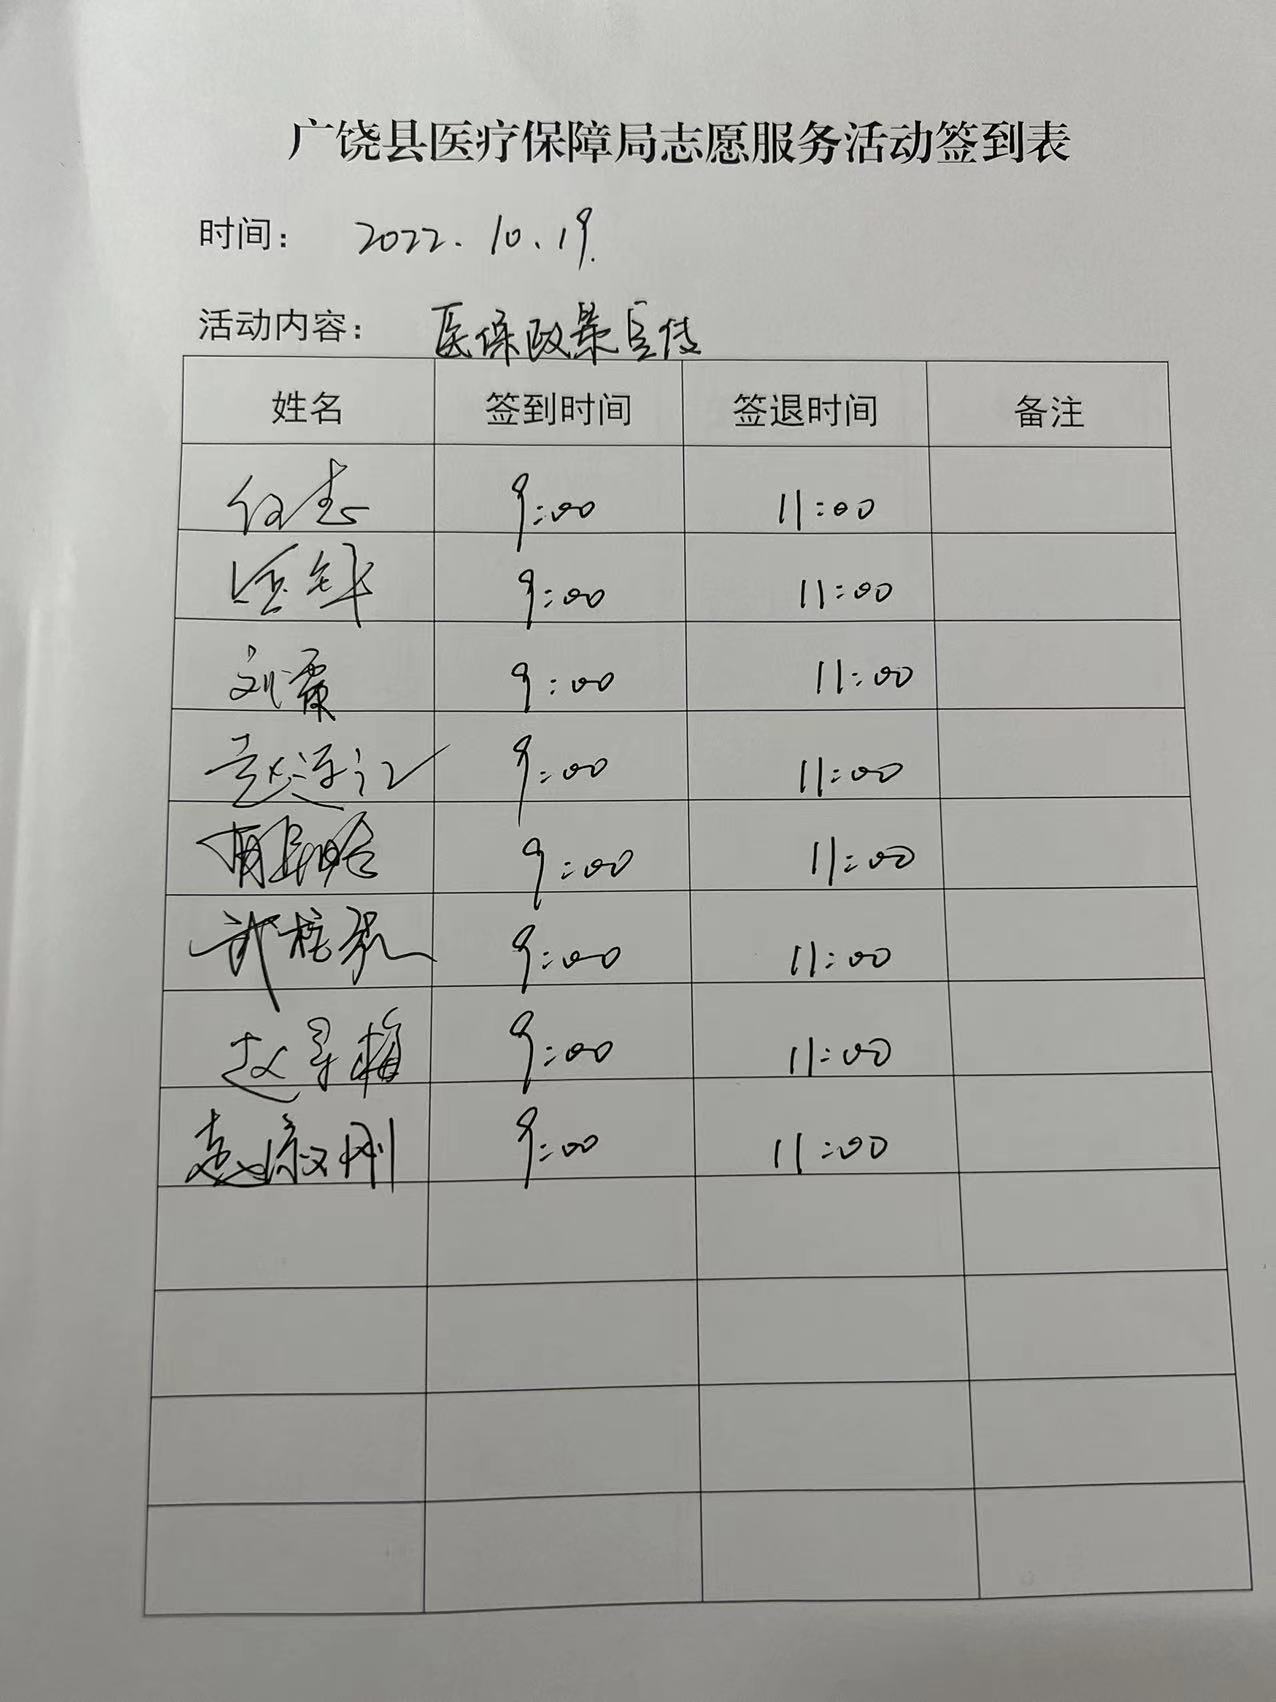 广饶县医疗保障局志愿服务活动签到表
时间： 2022.10.19.
活动内容： 医保政策宣传
姓名 签到时间 签退时间 备注
任志 9:00 11:00
9:00 11:00
刘霞 9:00 11:00
赵连江 9:00 11:00
9:00 11:00
武桂泉 9:00 11:00
赵寻梅 9:00 11:00
赵汉刚 9:00 11:00